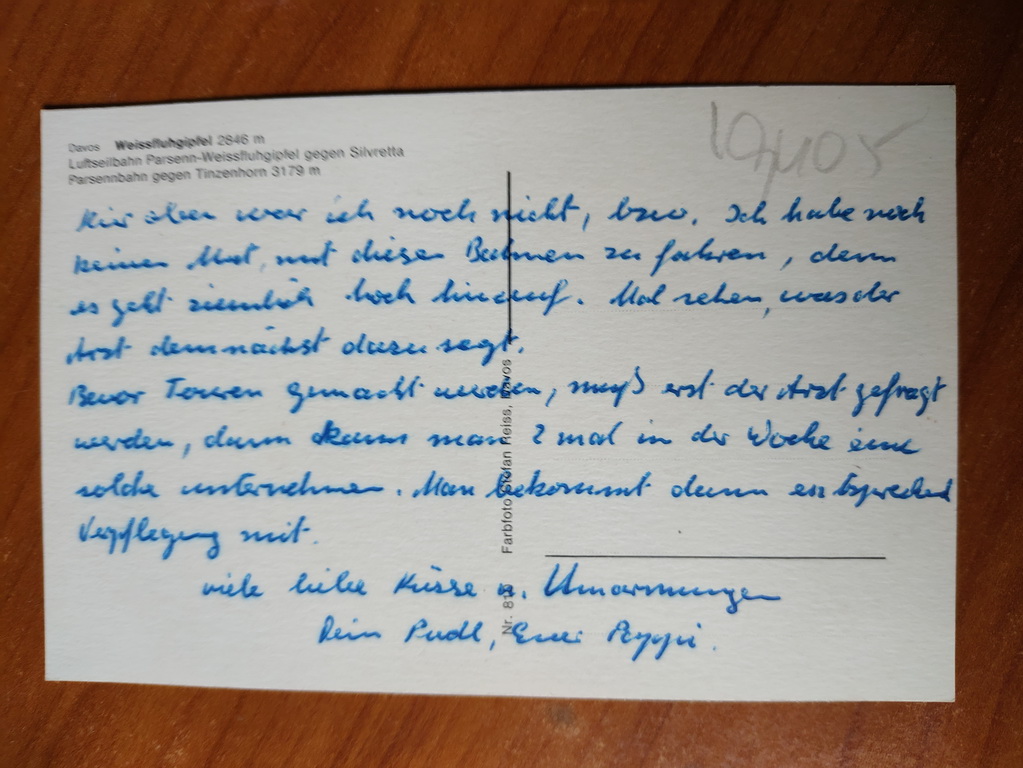 Davos Weissfluhgipfel 2846 m
Luftseilbahn Parsenn-Weissfluhgipfel gegen Silvretta
Parsennbahn gegen Tinzenhorn 3179 m
Hier oben war ich noch nicht, bzw. Ich habe noch
keinen Mut, mit diesen Bahnen zu fahren, denn
es geht ziemlich hoch hinauf. Mal sehen, was der
Arzt demnächst dazu sagt.
Bevor Touren gemacht werden, muß erst der Arzt gefragt
werden, dann kann man 2 mal in der Woche eine
solche unternehmen. Man bekommt dann entsprechend
Verpflegung mit.
viele liebe Küsse u. Umarmungen
Dein Pudl, Euer Peppi.
Farbfoto Stefan Reiss, Davos